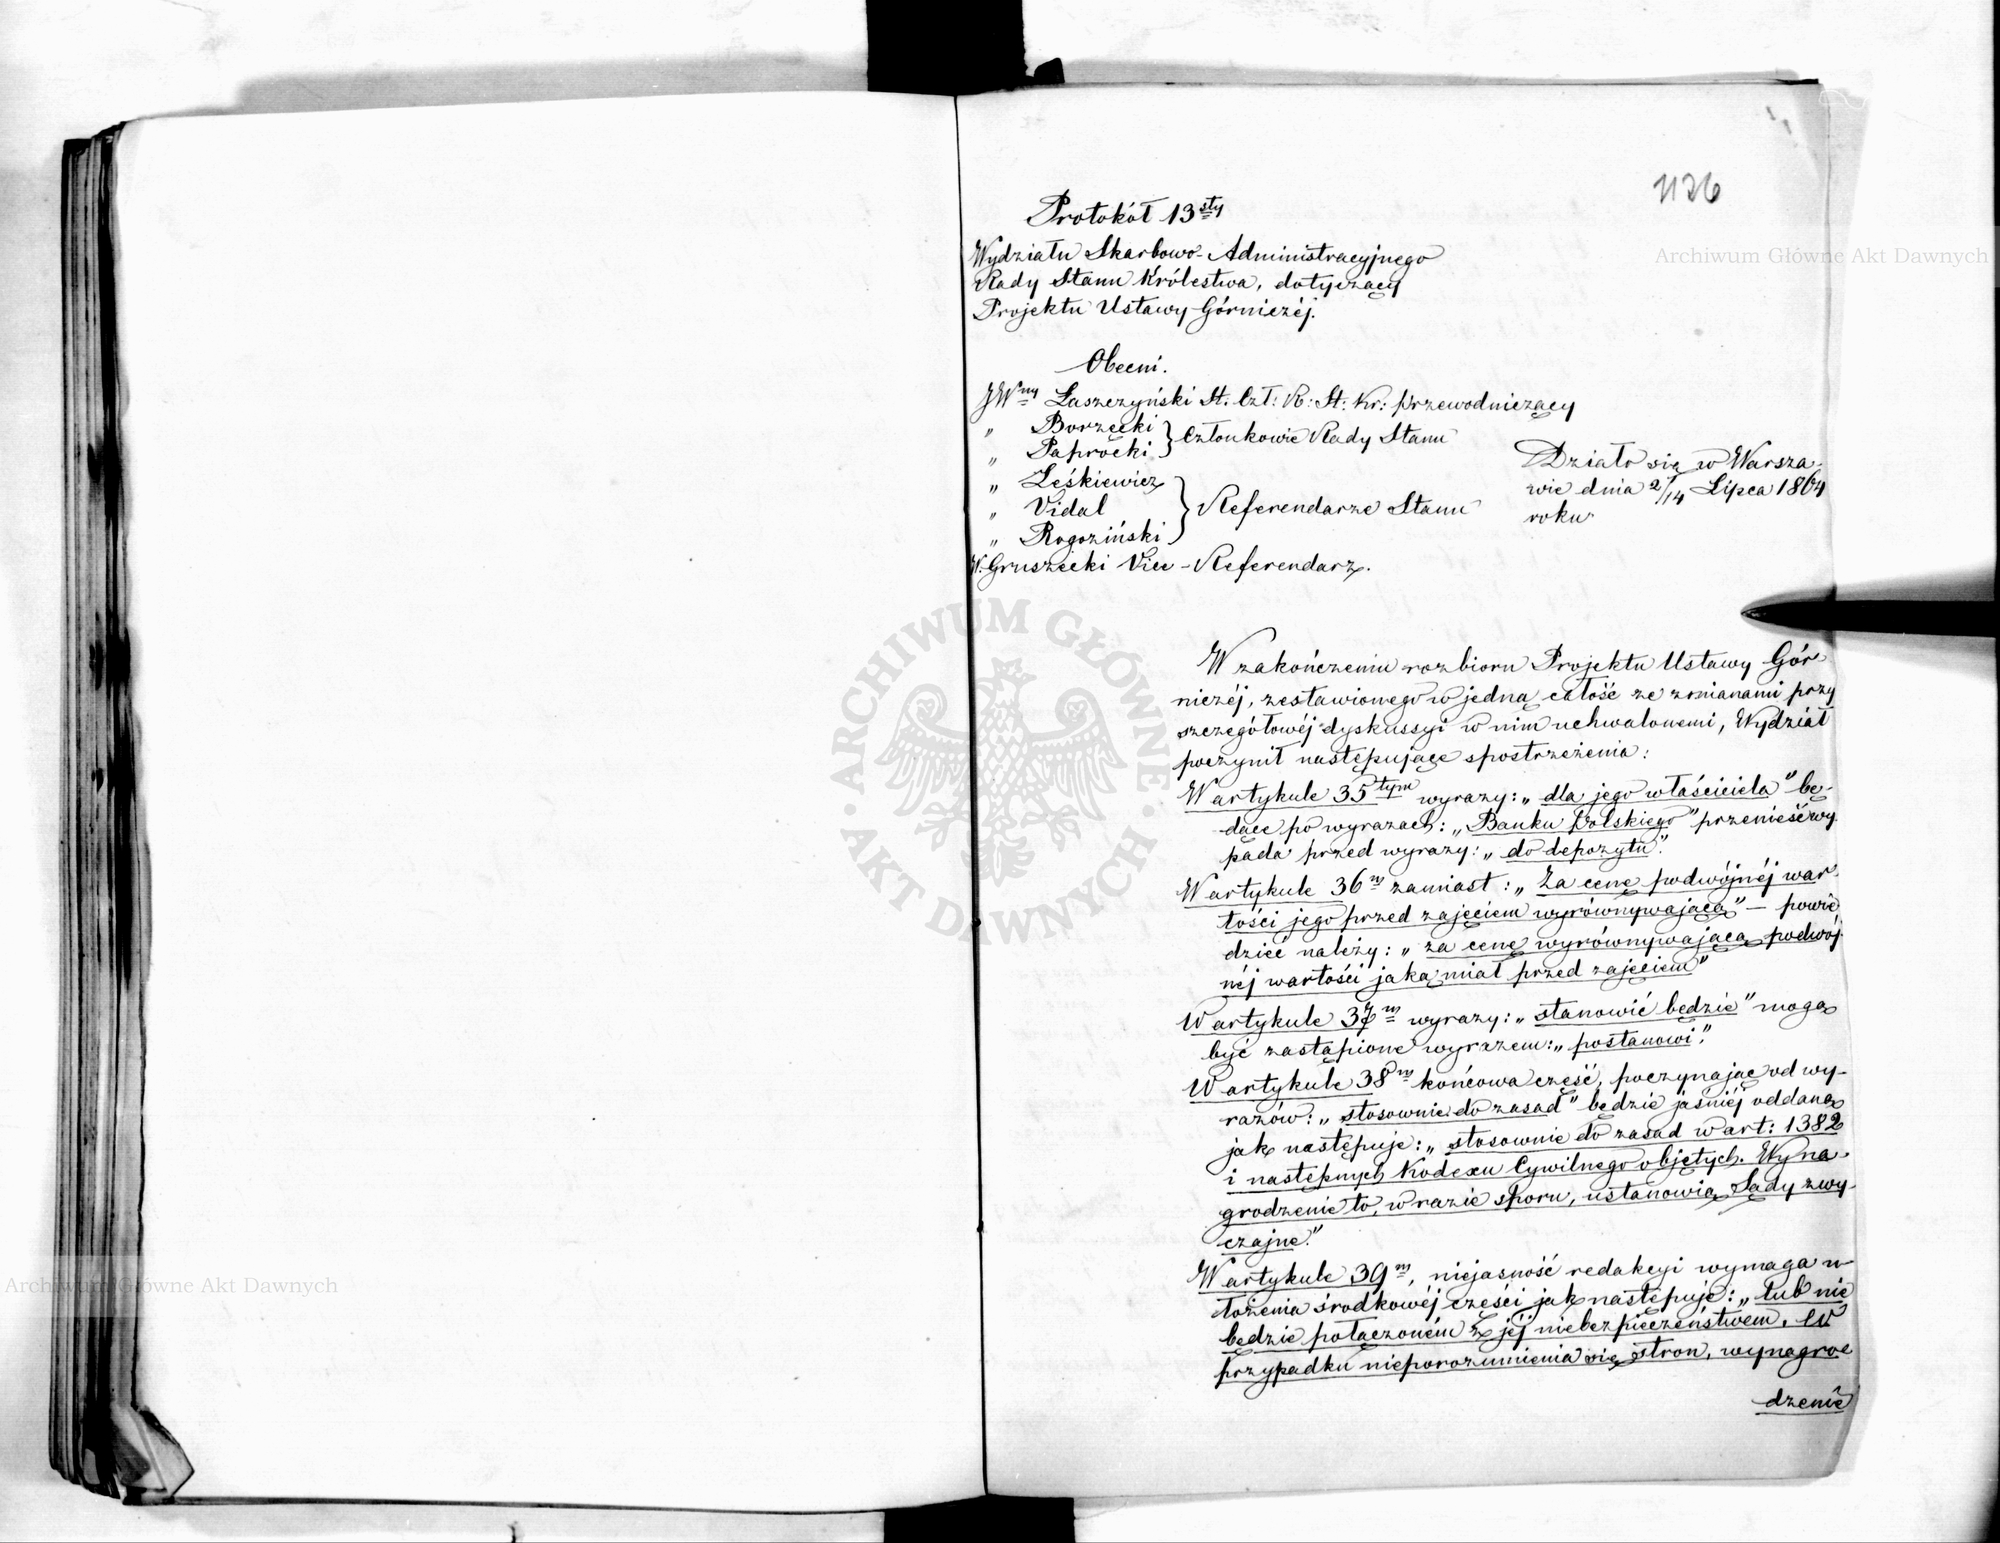 1136
Protokół 13sty
Wydziału Skarbowo-Administracyjnego
Rady Stanu Królestwa, dotyczący
Projektu Ustawy Górniczéj.
Obecni.
JWny Łaszczyński St. Czł: R: St: Kr: Przewodniczący
„ Borzęcki
„ Paprocki } Członkowie Rady Stanu
„ Leśkiewicz
„ Vidal } Referendarze Stanu
„ Rogoziński
W. Gruszecki Vice-Referendarz.
Działo się w Warsza-
wie dnia 2/14 Lipca 1864
roku
W zakończeniu rozbioru Projektu Ustawy Gór-
niczéj, zestawionego w jedną całość ze zmianami przy
szczegółowéj dyskussyi w nim uchwalonemi, Wydział
poczynił następujące spostrzeżenia:
W artykule 35tym wyrazy: „dla jego właściciela” bę-
dące po wyrazach: „Banku Polskiego” przenieść wy
pada przed wyrazy: „do depozytu”.
W artykule 36m zamiast: „Za cenę podwójnéj war-
tości jego przed zajęciem wyrównywającą” — powie
dzieć należy: „za cenę wyrównywającą podwój-
néj wartości jaką miał przed zajęciem”
W artykule 37m wyrazy: „stanowić będzie” mogą
być zastąpione wyrazem: „postanowi”.
W artykule 38m końcowa część, poczynając od wy-
razów: „stosownie do zasad” będzie jaśniéj oddaną
jak następuje: „stosownie do zasad w art: 1382
i następnych Kodexu Cywilnego objętych. Wyna-
grodzenie to, w razie sporu, ustanowią Sądy zwy-
czajne.”
W artykule 39m, niejasność redakcyi wymaga u-
łożenia środkowéj części jak następuje: „lub nie
będzie połączoném z jéj niebezpieczeństwem. W
przypadku nieporozumienia się stron, wynagro
dzenie
Archiwum Główne Akt Dawnych
ARCHIWUM GŁÓWNE AKT DAWNYCH
Archiwum Główne Akt Dawnych